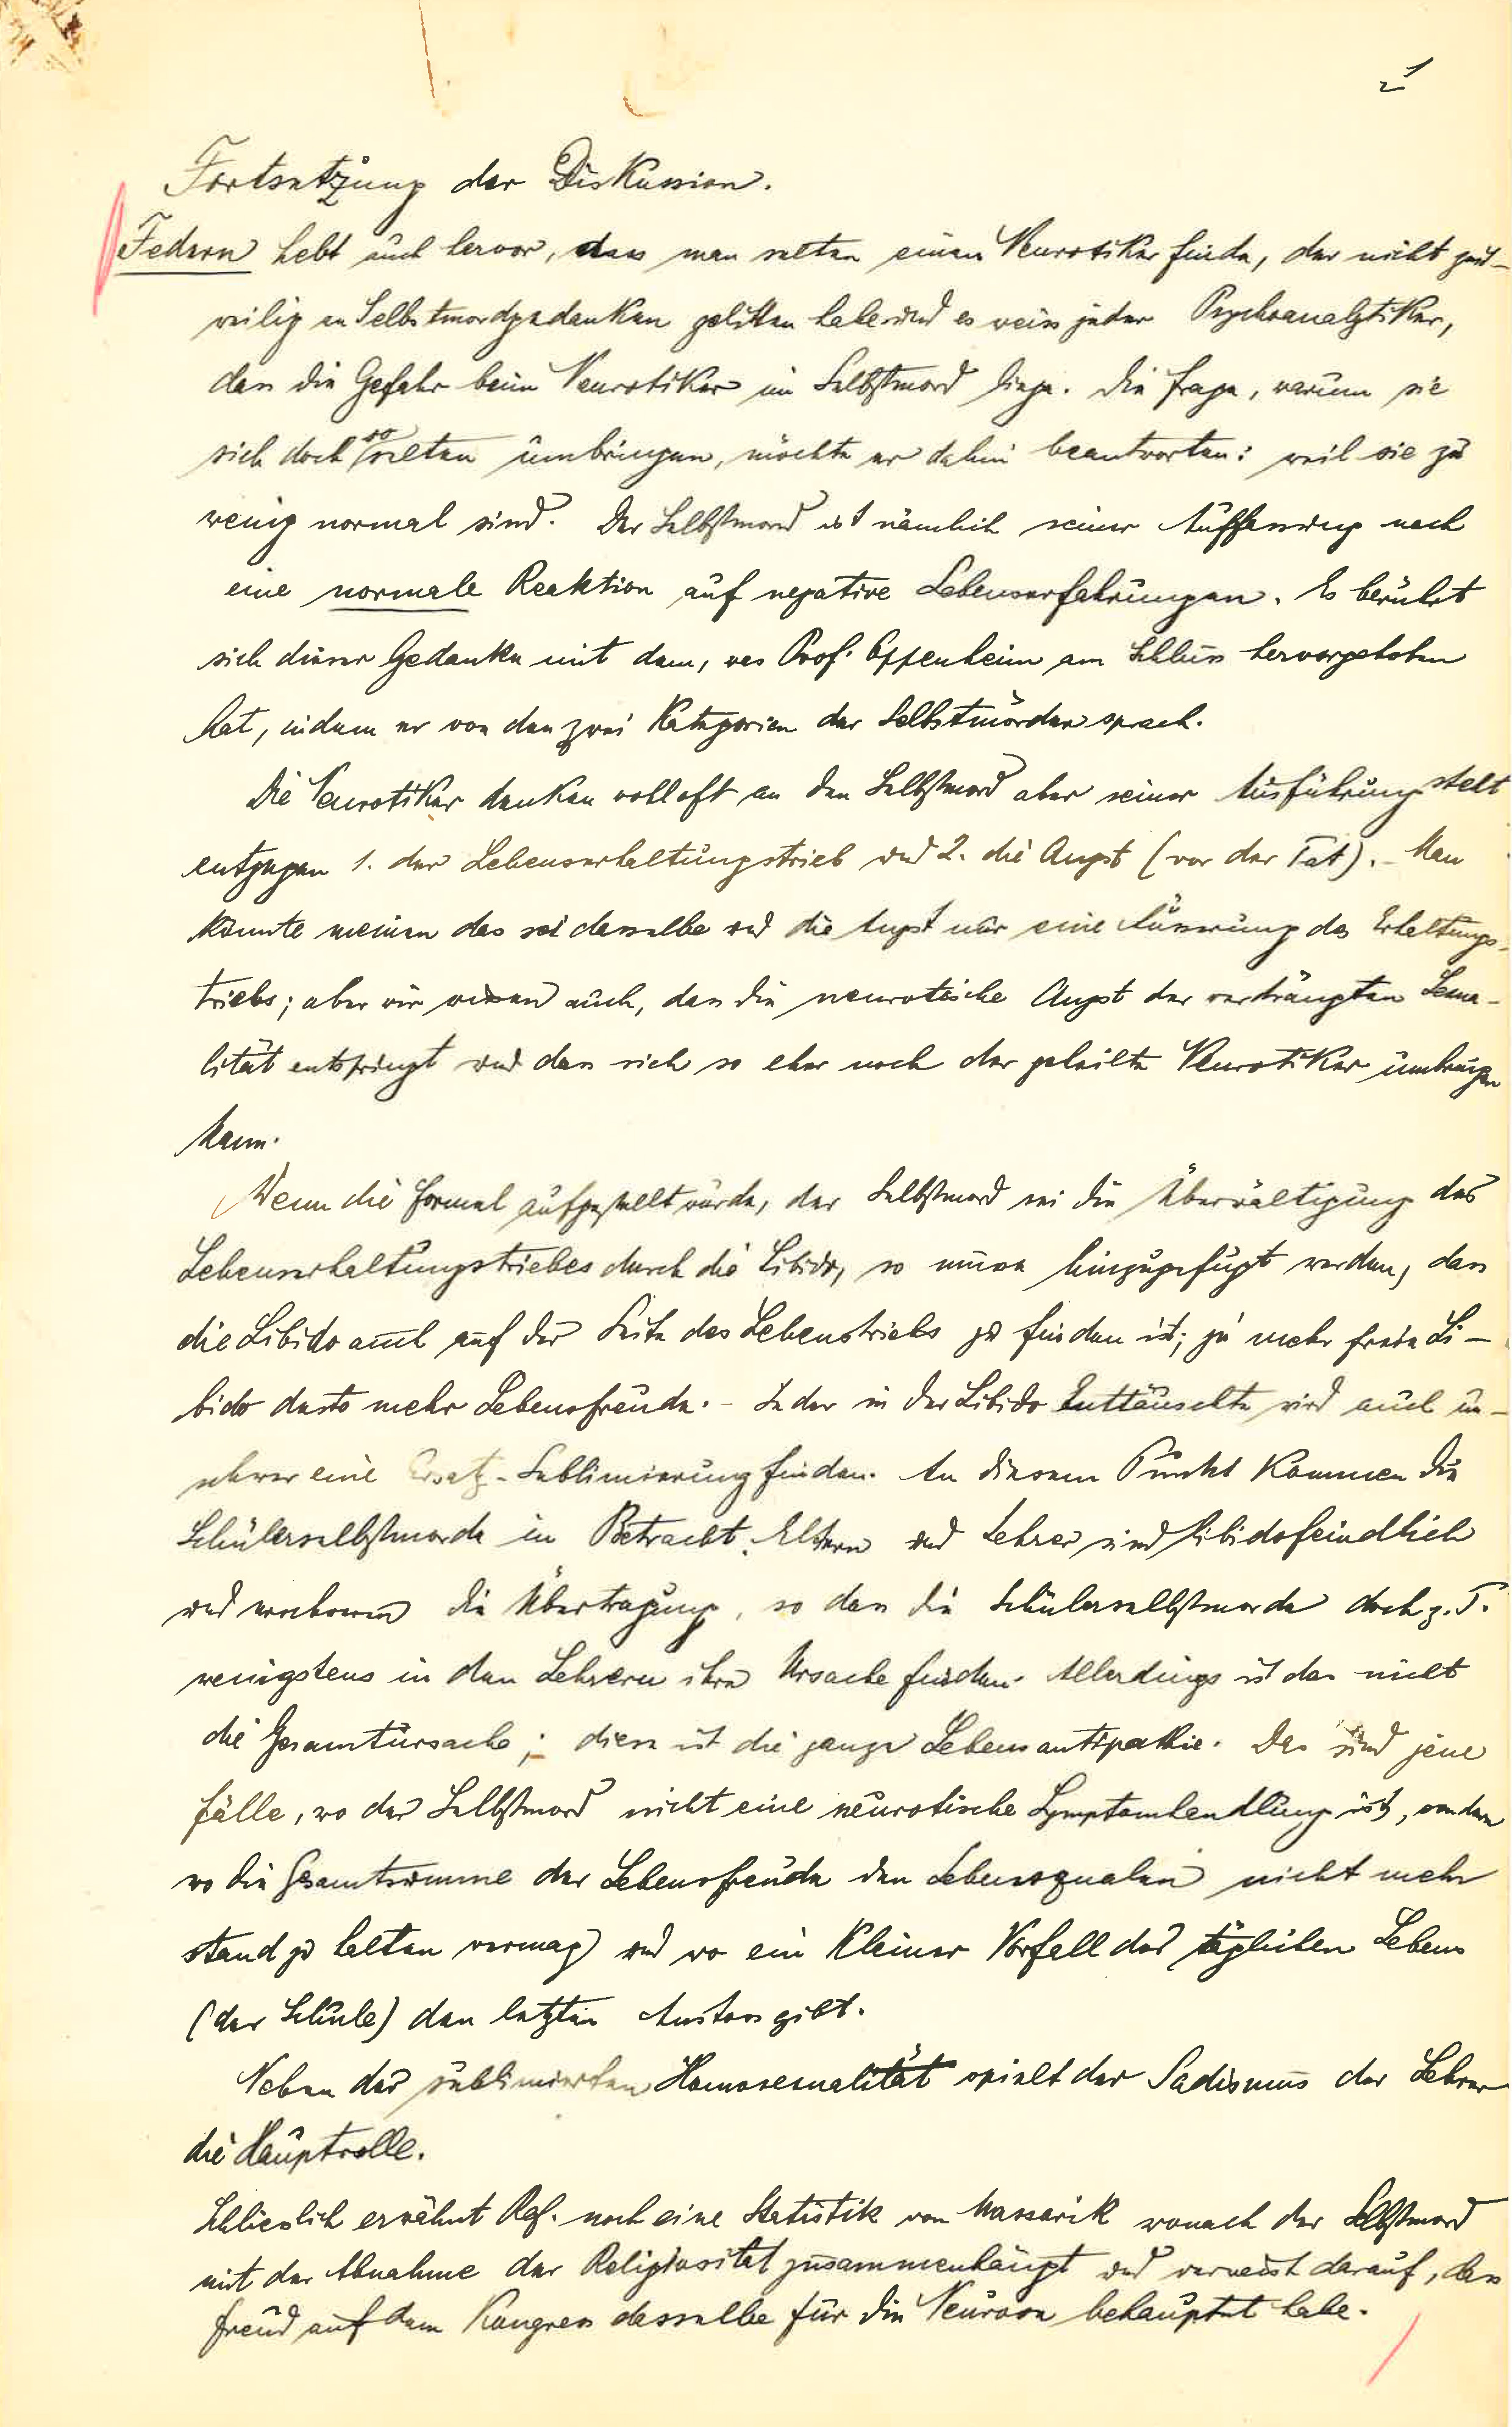 1
Fortsetzung der Diskussion.
Federn hebt auch hervor, dass man selten einen Neurotiker finde, der nicht zeit-
weilig an Selbstmordgedanken gelitten habe und es weiss jeder Psychoanalytiker,
dass die Gefahr beim Neurotiker im Selbstmord liege. Die Frage, warum sie
sich doch so selten umbringen, möchte er dahin beantworten: weil sie zu
wenig normal sind. Der Selbstmord ist nämlich seiner Auffassung nach
eine normale Reaktion auf negative Lebenserfahrungen. Es berührt
sich dieser Gedanke mit dem, was Prof. Oppenheim am Schluss hervorgehoben
hat, indem er von den zwei Kategorien der Selbstmörder sprach.
Die Neurotiker denken wohl oft an den Selbstmord aber seiner Ausführung stellt
entgegen 1. der Lebenserhaltungstrieb und 2. die Angst (vor der Tat). – Man
könnte meinen das sei dasselbe und die Angst nur eine Äusserung des Erhaltungs-
triebs; aber wir wissen auch, dass die neurotische Angst der verdrängten Sexua-
lität entspringt und dass sich so eher noch der geheilte Neurotiker umbringen
kann.
Wenn die Formel aufgestellt wurde, der Selbstmord sei die Überwältigung des
Lebenserhaltungstriebes durch die Libido, so muss hinzugefügt werden, dass
die Libido auch auf der Seite des Lebenstriebs zu finden ist; je mehr freie Li-
bido desto mehr Lebensfreude. – Jeder in der Libido Enttäuschte wird auch un-
schwer eine Ersatz-Sublimierung finden. An diesem Punkt kommen die
Schülerselbstmorde in Betracht. Eltern und Lehrer sind libidofeindlich
und die Übertragung, so dass die Schülerselbstmorde doch z. T.
wenigstens in den Lehrern ihre Ursache finden. Allerdings ist das nicht
die Gesamtursache; diese ist die ganze Lebensantipathie. Das sind jene
Fälle, wo der Selbstmord nicht eine neurotische Symptomhandlung ist, sondern
wo die Gesamtsumme der Lebensfreude den Lebensqualen nicht mehr
stand zu halten vermag und wo ein kleiner Vorfall des täglichen Lebens
(der Schule) den letzten Anstoss gibt.
Neben der sublimierten Homosexualität spielt der Sadismus der Lehrer
die Hauptrolle.
Schliesslich erwähnt Ref. noch eine Statistik von Massarik wonach der Selbstmord
mit der Abnahme der Religiosität zusammenhängt und verweist darauf, dass
Freud auf dem Kongress dasselbe für die Neurose behauptet habe.